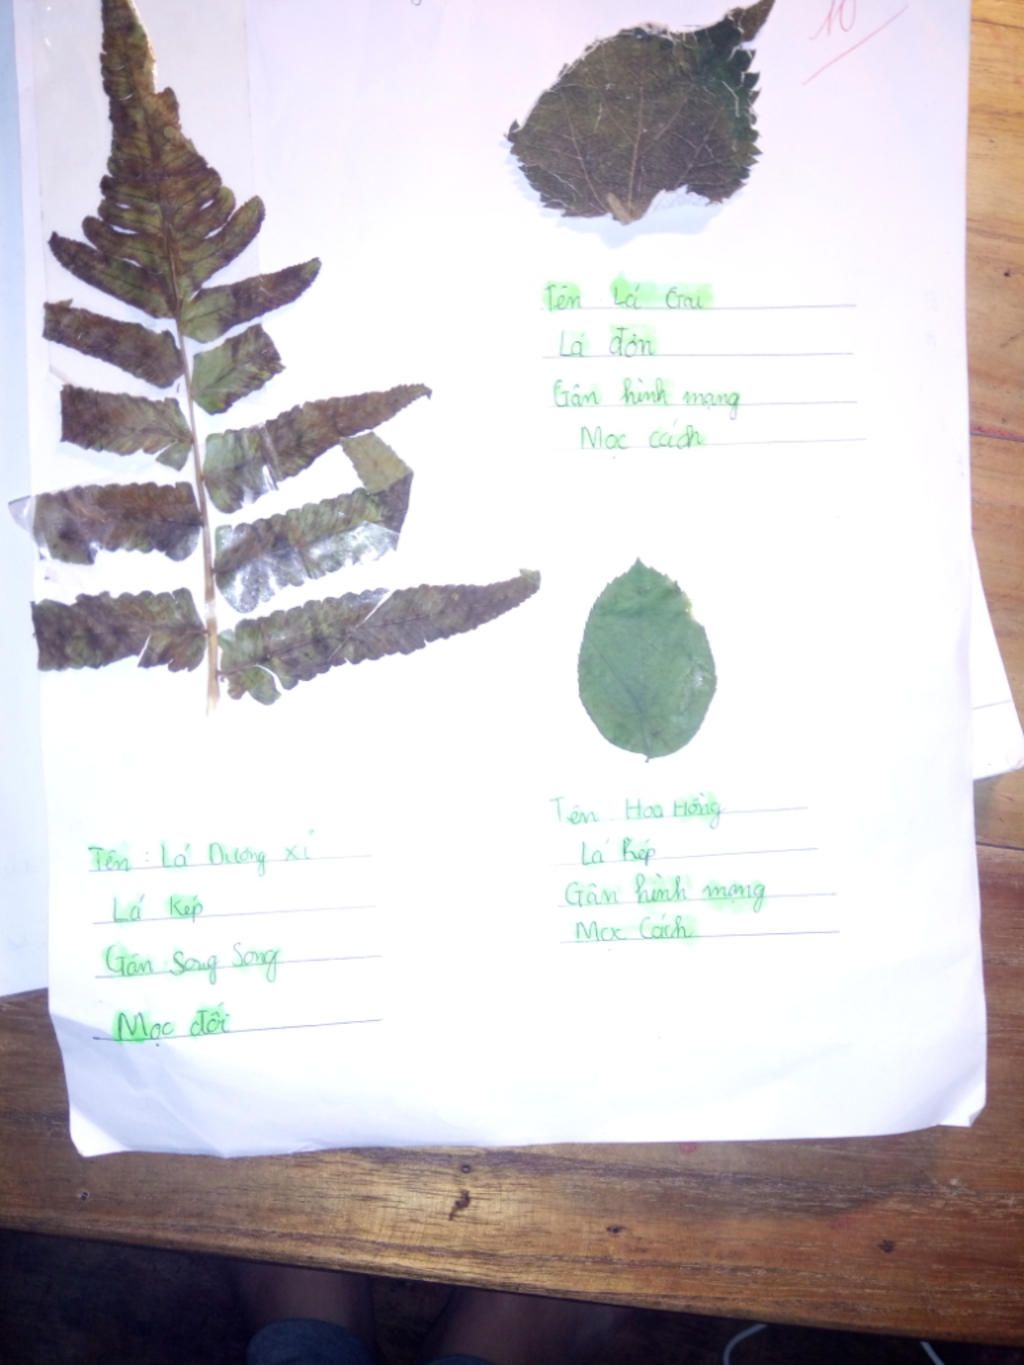 10
Tên Lá Gai
Lá đơn
Gân hình mạng
Mọc cách
Tên : Lá Dương xỉ
Lá kép
Gân Song Song
Mọc đối
Tên Hoa Hồng
Lá kép
Gân hình mạng
Mọc Cách